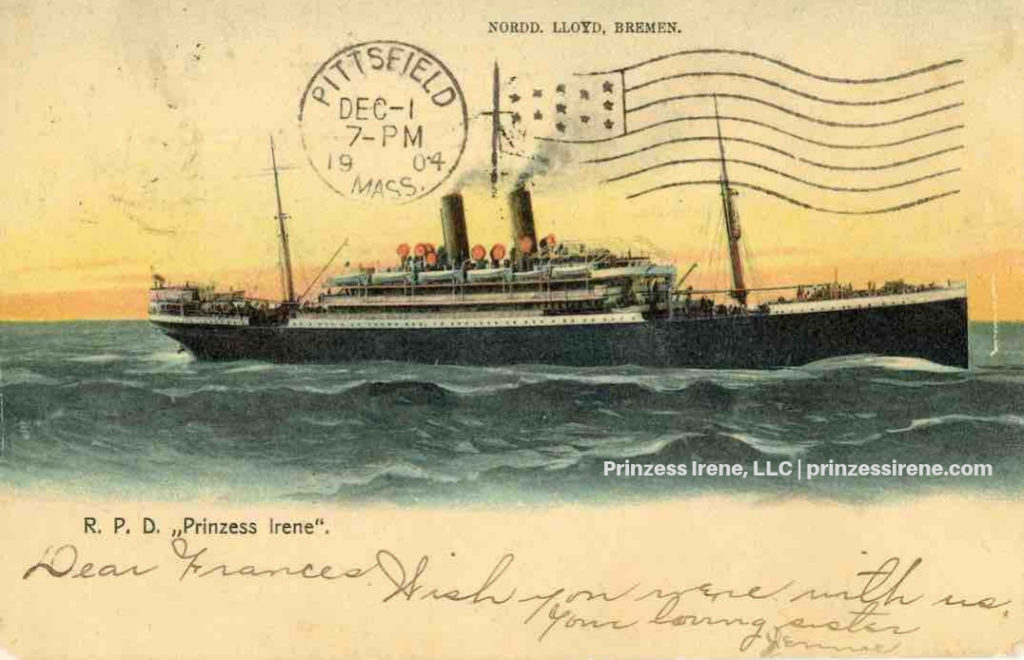 NORDD. LLOYD, BREMEN.
PITTSFIELD
DEC-1
7-PM
19 04
MASS.
Prinzess Irene, LLC | prinzessirene.com
R. P. D. „Prinzess Irene“.
Dear Frances. Wish you were with us.
Your loving sister
Jennie